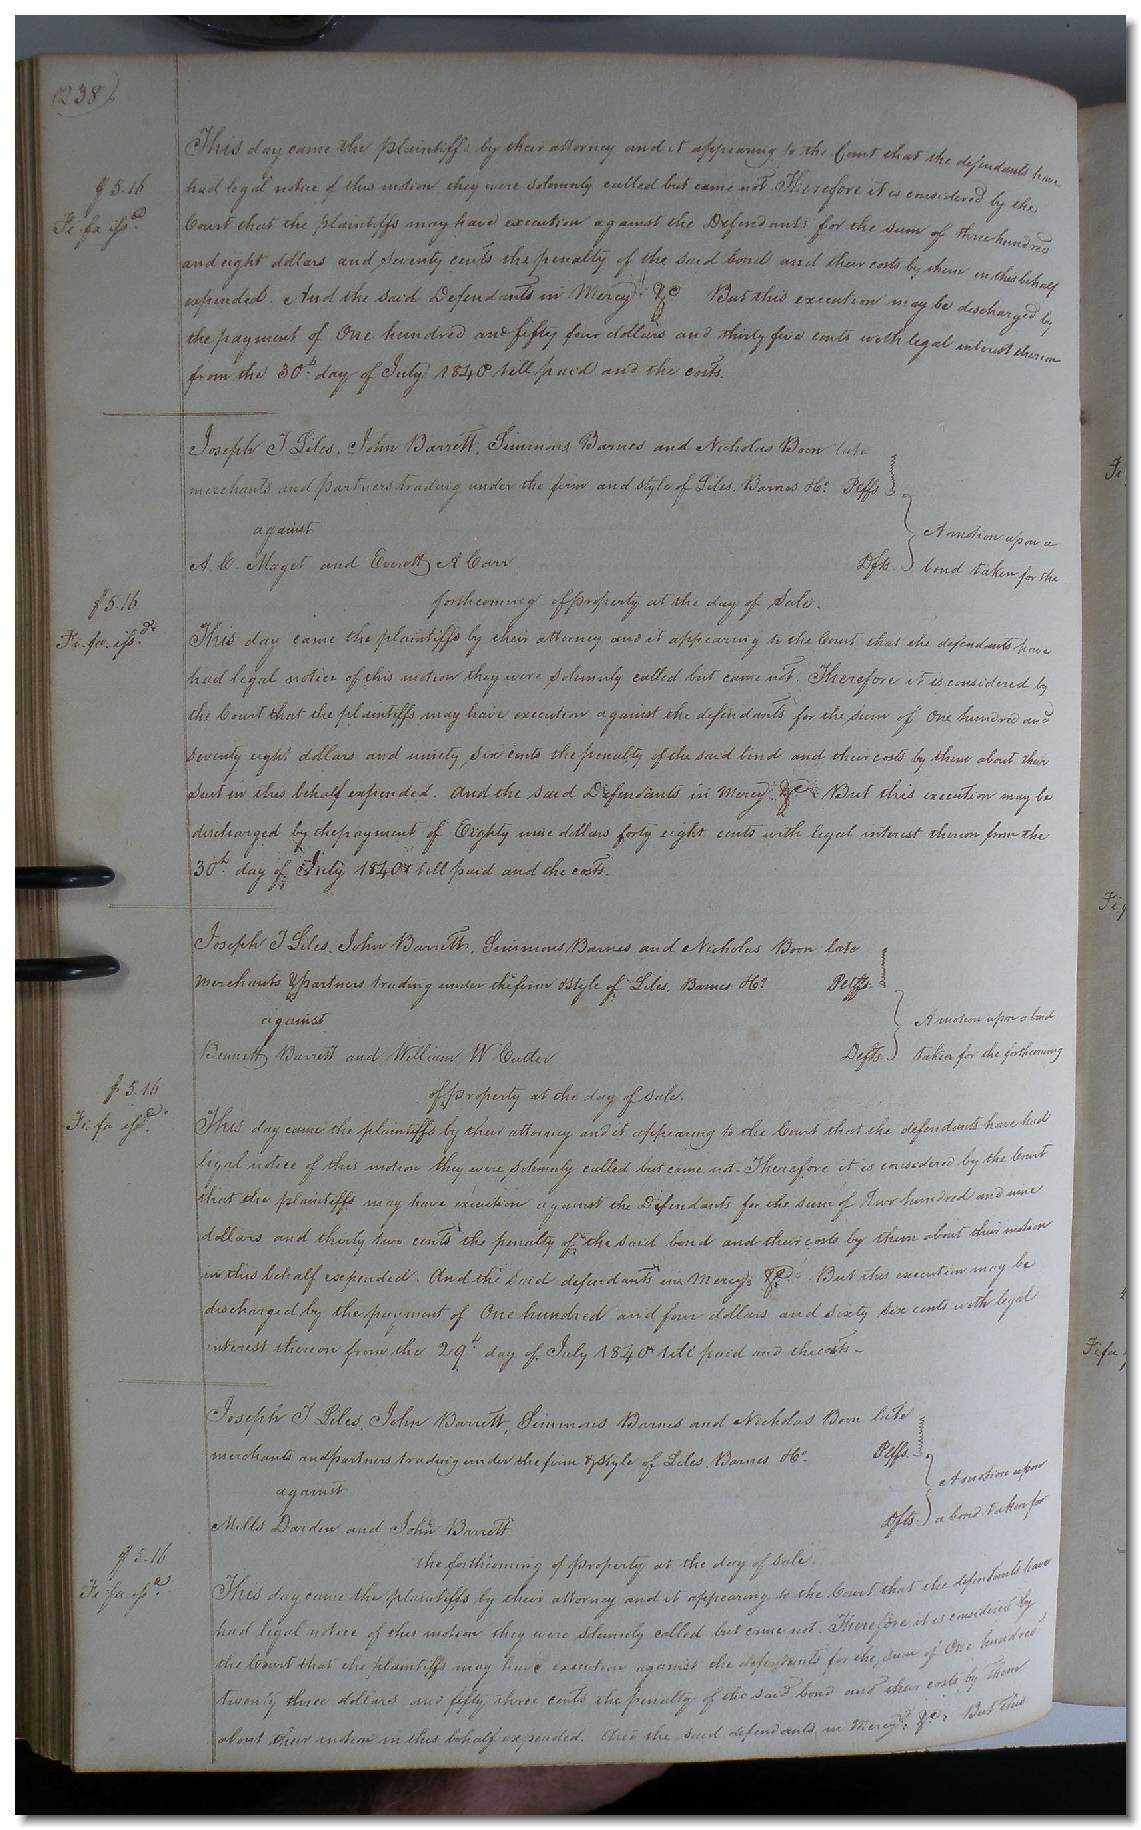 (238)
This day came the plaintiffs by their attorney and it appearing to the Court that the defendants have
$ 5.16
had legal notice of this motion they were solemnly called but came not. Therefore it is considered by the
Fi. fa. issd.
Court that the plaintiffs may have execution against the Defendants for the sum of three hundred
and eight dollars and seventy cents the penalty of the said bond and their costs by them in this behalf
expended. And the said Defendants in Mercy &c But this execution may be discharged by
the payment of One hundred and fifty four dollars and thirty five cents with legal interest thereon
from the 30th day of July 1840 till paid and the costs.
Joseph T Liles, John Barrett, Simmons Barnes and Nicholas Boon late
merchants and partners trading under the firm and style of Liles, Barnes & Co. Pltffs
against
A motion upon a
A. C. Maget and Everett A Carr Dfts.
bond taken for the
forthcoming of property at the day of sale.
$ 5.16
Fi. fa. issd.
This day came the plaintiffs by their attorney and it appearing to the Court that the defendants have
had legal notice of this motion they were solemnly called but came not. Therefore it is considered by
the Court that the plaintiffs may have execution against the defendants for the sum of One hundred and
seventy eight dollars and ninety six cents the penalty of the said bond and their costs by them about their
suit in this behalf expended. And the said Defendants in Mercy &c. But this execution may be
discharged by the payment of Eighty nine dollars forty eight cents with legal interest thereon from the
30th day of July 1840 till paid and the costs.
Joseph T Liles, John Barrett, Simmons Barnes and Nicholas Boon late
merchants & partners trading under the firm & style of Liles, Barnes & Co. Pltffs.
against
A motion upon a bond
Bennett Barrett and William W Cutler Defts.
taken for the forthcoming
of property at the day of sale.
$ 5.16
Fi. fa. issd.
This day came the plaintiffs by their attorney and it appearing to the Court that the defendants have had
legal notice of this motion they were solemnly called but came not. Therefore it is considered by the Court
that the plaintiffs may have execution against the Defendants for the sum of Two hundred and nine
dollars and thirty two cents the penalty of the said bond and their costs by them about their motion
in this behalf expended. And the said defendants in Mercy &c. But this execution may be
discharged by the payment of One hundred and four dollars and sixty six cents with legal
interest thereon from the 29th day of July 1840 till paid and the costs -
Joseph T Liles, John Barrett, Simmons Barnes and Nicholas Boon late
merchants and partners trading under the firm & style of Liles, Barnes & Co. Pltffs.
against
A motion upon
Mills Darden and John Barrett Dfts.
a bond taken for
the forthcoming of property at the day of sale.
$ 5.16
Fi. fa. issd.
This day came the plaintiffs by their attorney and it appearing to the Court that the defendants have
had legal notice of this motion they were solemnly called but came not. Therefore it is considered by
the Court that the plaintiffs may have execution against the defendants for the sum of One hundred
twenty three dollars and fifty three cents the penalty of the said bond and their costs by them
about their motion in this behalf expended. And the said defendants in Mercy &c. But this